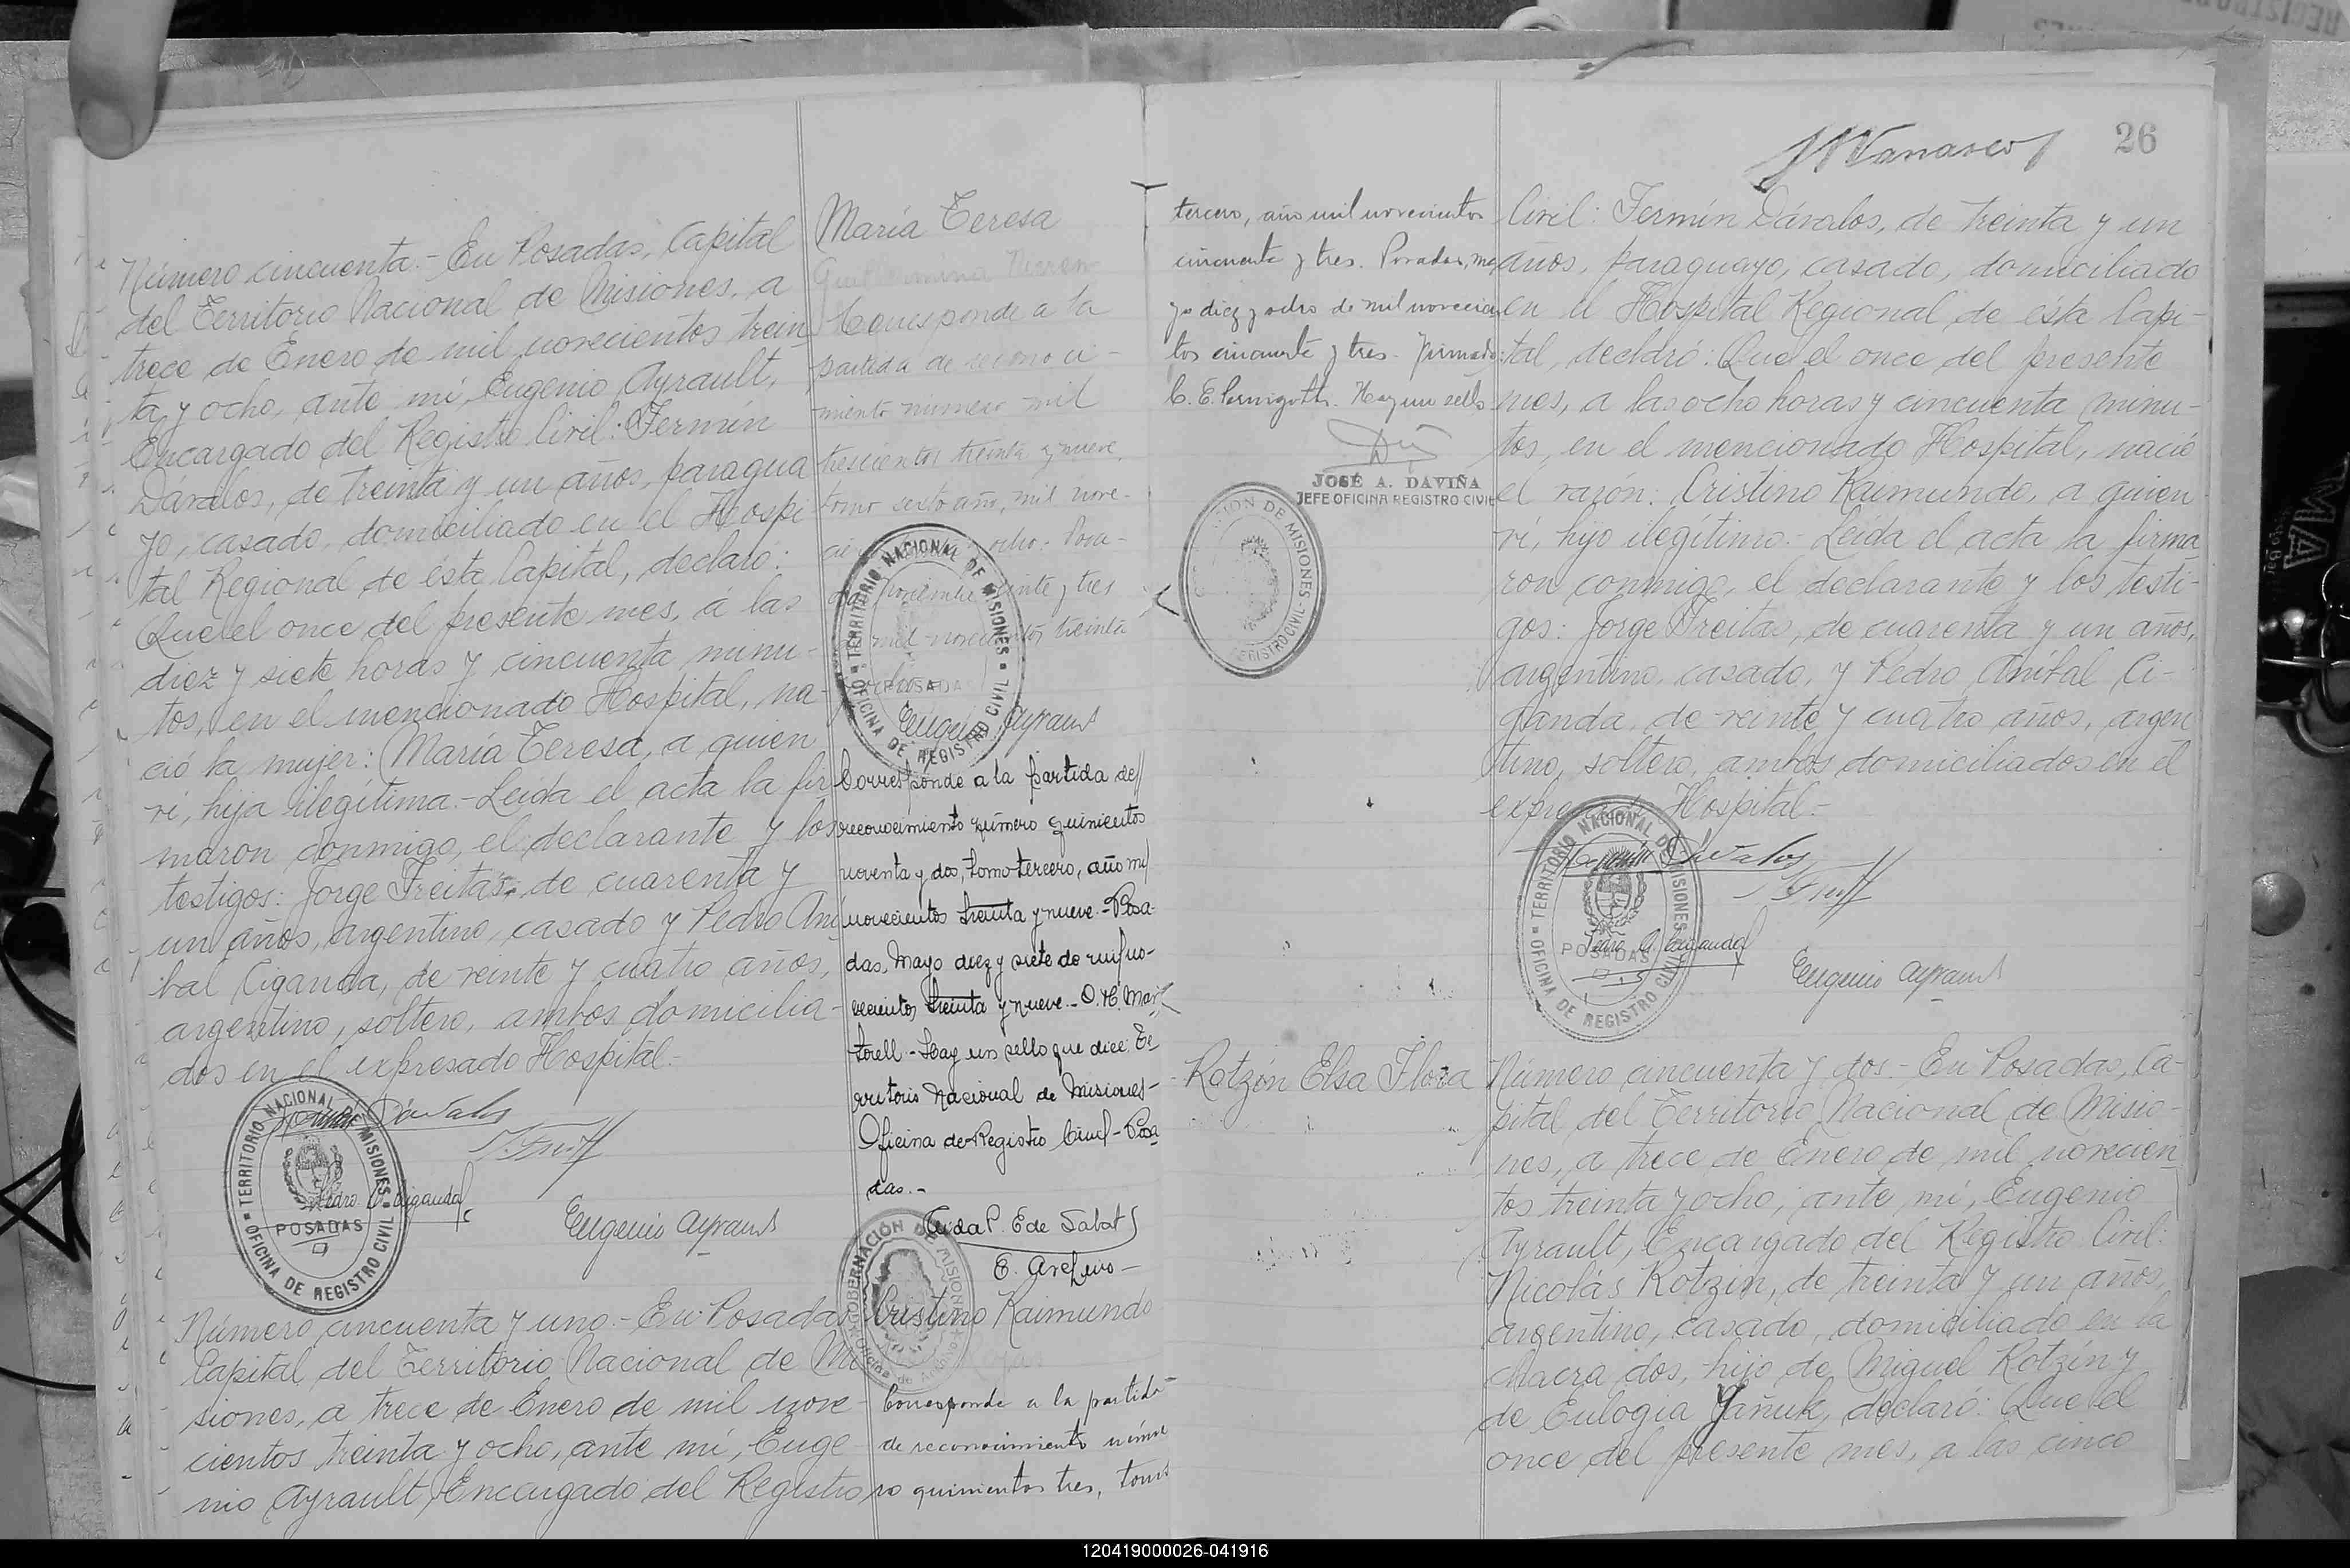 Número cincuenta.- En Posadas, Capital
del Territorio Nacional de Misiones, a
trece de Enero de mil novecientos trein
ta y ocho, ante mí, Eugenio Ayrault,
Encargado del Registro Civil: Fermín
Dávalos, de treinta y un años, paragua
yo, casado, domiciliado en el Hospi
tal Regional de ésta Capital, declaró:
Que el once del presente mes, á las
diez y siete horas y cincuenta minu-
tos, en el mencionado Hospital, na-
ció la mujer: María Teresa, a quien
ví, hija ilegítima.- Leída el acta la fir
maron conmigo, el declarante y los
testigos: Jorge Freitas, de cuarenta y
un años, argentino, casado y Pedro Aní
bal Ciganda, de veinte y cuatro años,
argentino, soltero, ambos domicilia-
dos en el expresado Hospital.-
Dávalos
Pedro A. Ciganda
Eugenio Ayrault
TERRITORIO NACIONAL DE MISIONES
POSADAS
OFICINA DE REGISTRO CIVIL
Número cincuenta y uno.- En Posadas
Capital del Territorio Nacional de Mi
siones, a trece de Enero de mil nove-
cientos treinta y ocho, ante mí, Euge
nio Ayrault, Encargado del Registro
María Teresa
Guillermina
Corresponde a la
partida de reconoci-
miento número mil
trescientos treinta y nueve,
tomo sexto año, mil nove-
ocho. Posa-
veinte y tres
mil novecientos treinta
y ocho
Eugenio Ayrault
TERRITORIO NACIONAL DE MISIONES
POSADAS
OFICINA DE REGISTRO CIVIL
Corresponde a la partida de
reconocimiento número quinientos
noventa y dos, tomo tercero, año mil
novecientos treinta y nueve.- Posa-
das, Mayo diez y siete de mil no-
vecientos treinta y nueve.- O. H. Mar
torell.- Hay un sello que dice: Te
rritorio Nacional de Misiones-
Oficina de Registro Civil- Posa
das.-
P. E de Sabat
E. Arefuvo
GOBERNACIÓN DE MISIONES
Cristino Raimundo
Corresponde a la partida
de reconocimiento núme
ro quinientos tres, tomo
tercero, año mil novecientos
cincuenta y tres. Posadas, ma
yo diez y ocho de mil novecien
tos cincuenta y tres. Firmado:
Hay un sello
JOSÉ A. DAVIÑA
JEFE OFICINA REGISTRO CIVIL
DE MISIONES
REGISTRO CIVIL
26
Civil: Fermín Dávalos, de treinta y un
años, paraguayo, casado, domiciliado
en el Hospital Regional de ésta Capi-
tal, declaró: Que el once del presente
mes, a las ocho horas y cincuenta minu-
tos, en el mencionado Hospital, nació
el varón: Cristino Raimundo, a quien
ví, hijo ilegítimo.- Leída el acta la firma
ron conmigo, el declarante y los testi-
gos: Jorge Freitas, de cuarenta y un años,
argentino, casado, y Pedro Aníbal Ci-
ganda, de veinte y cuatro años, argen
tino, soltero, ambos domiciliados en el
expresado Hospital.-
Dávalos
Pedro A. Ciganda
Eugenio Ayrault
TERRITORIO NACIONAL DE MISIONES
POSADAS
OFICINA DE REGISTRO CIVIL
Rotzin Elsa Flora
Número cincuenta y dos.- En Posadas, Ca-
pital del Territorio Nacional de Misio-
nes, a trece de Enero de mil novecien
tos treinta y ocho, ante mí, Eugenio
Ayrault, Encargado del Registro Civil:
Nicolás Rotzin, de treinta y un años,
argentino, casado, domiciliado en la
chacra dos, hijo de Miguel Rotzin y
de Eulogia Yañuk, declaró: Que el
once del presente mes, a las cinco
120419000026-041916